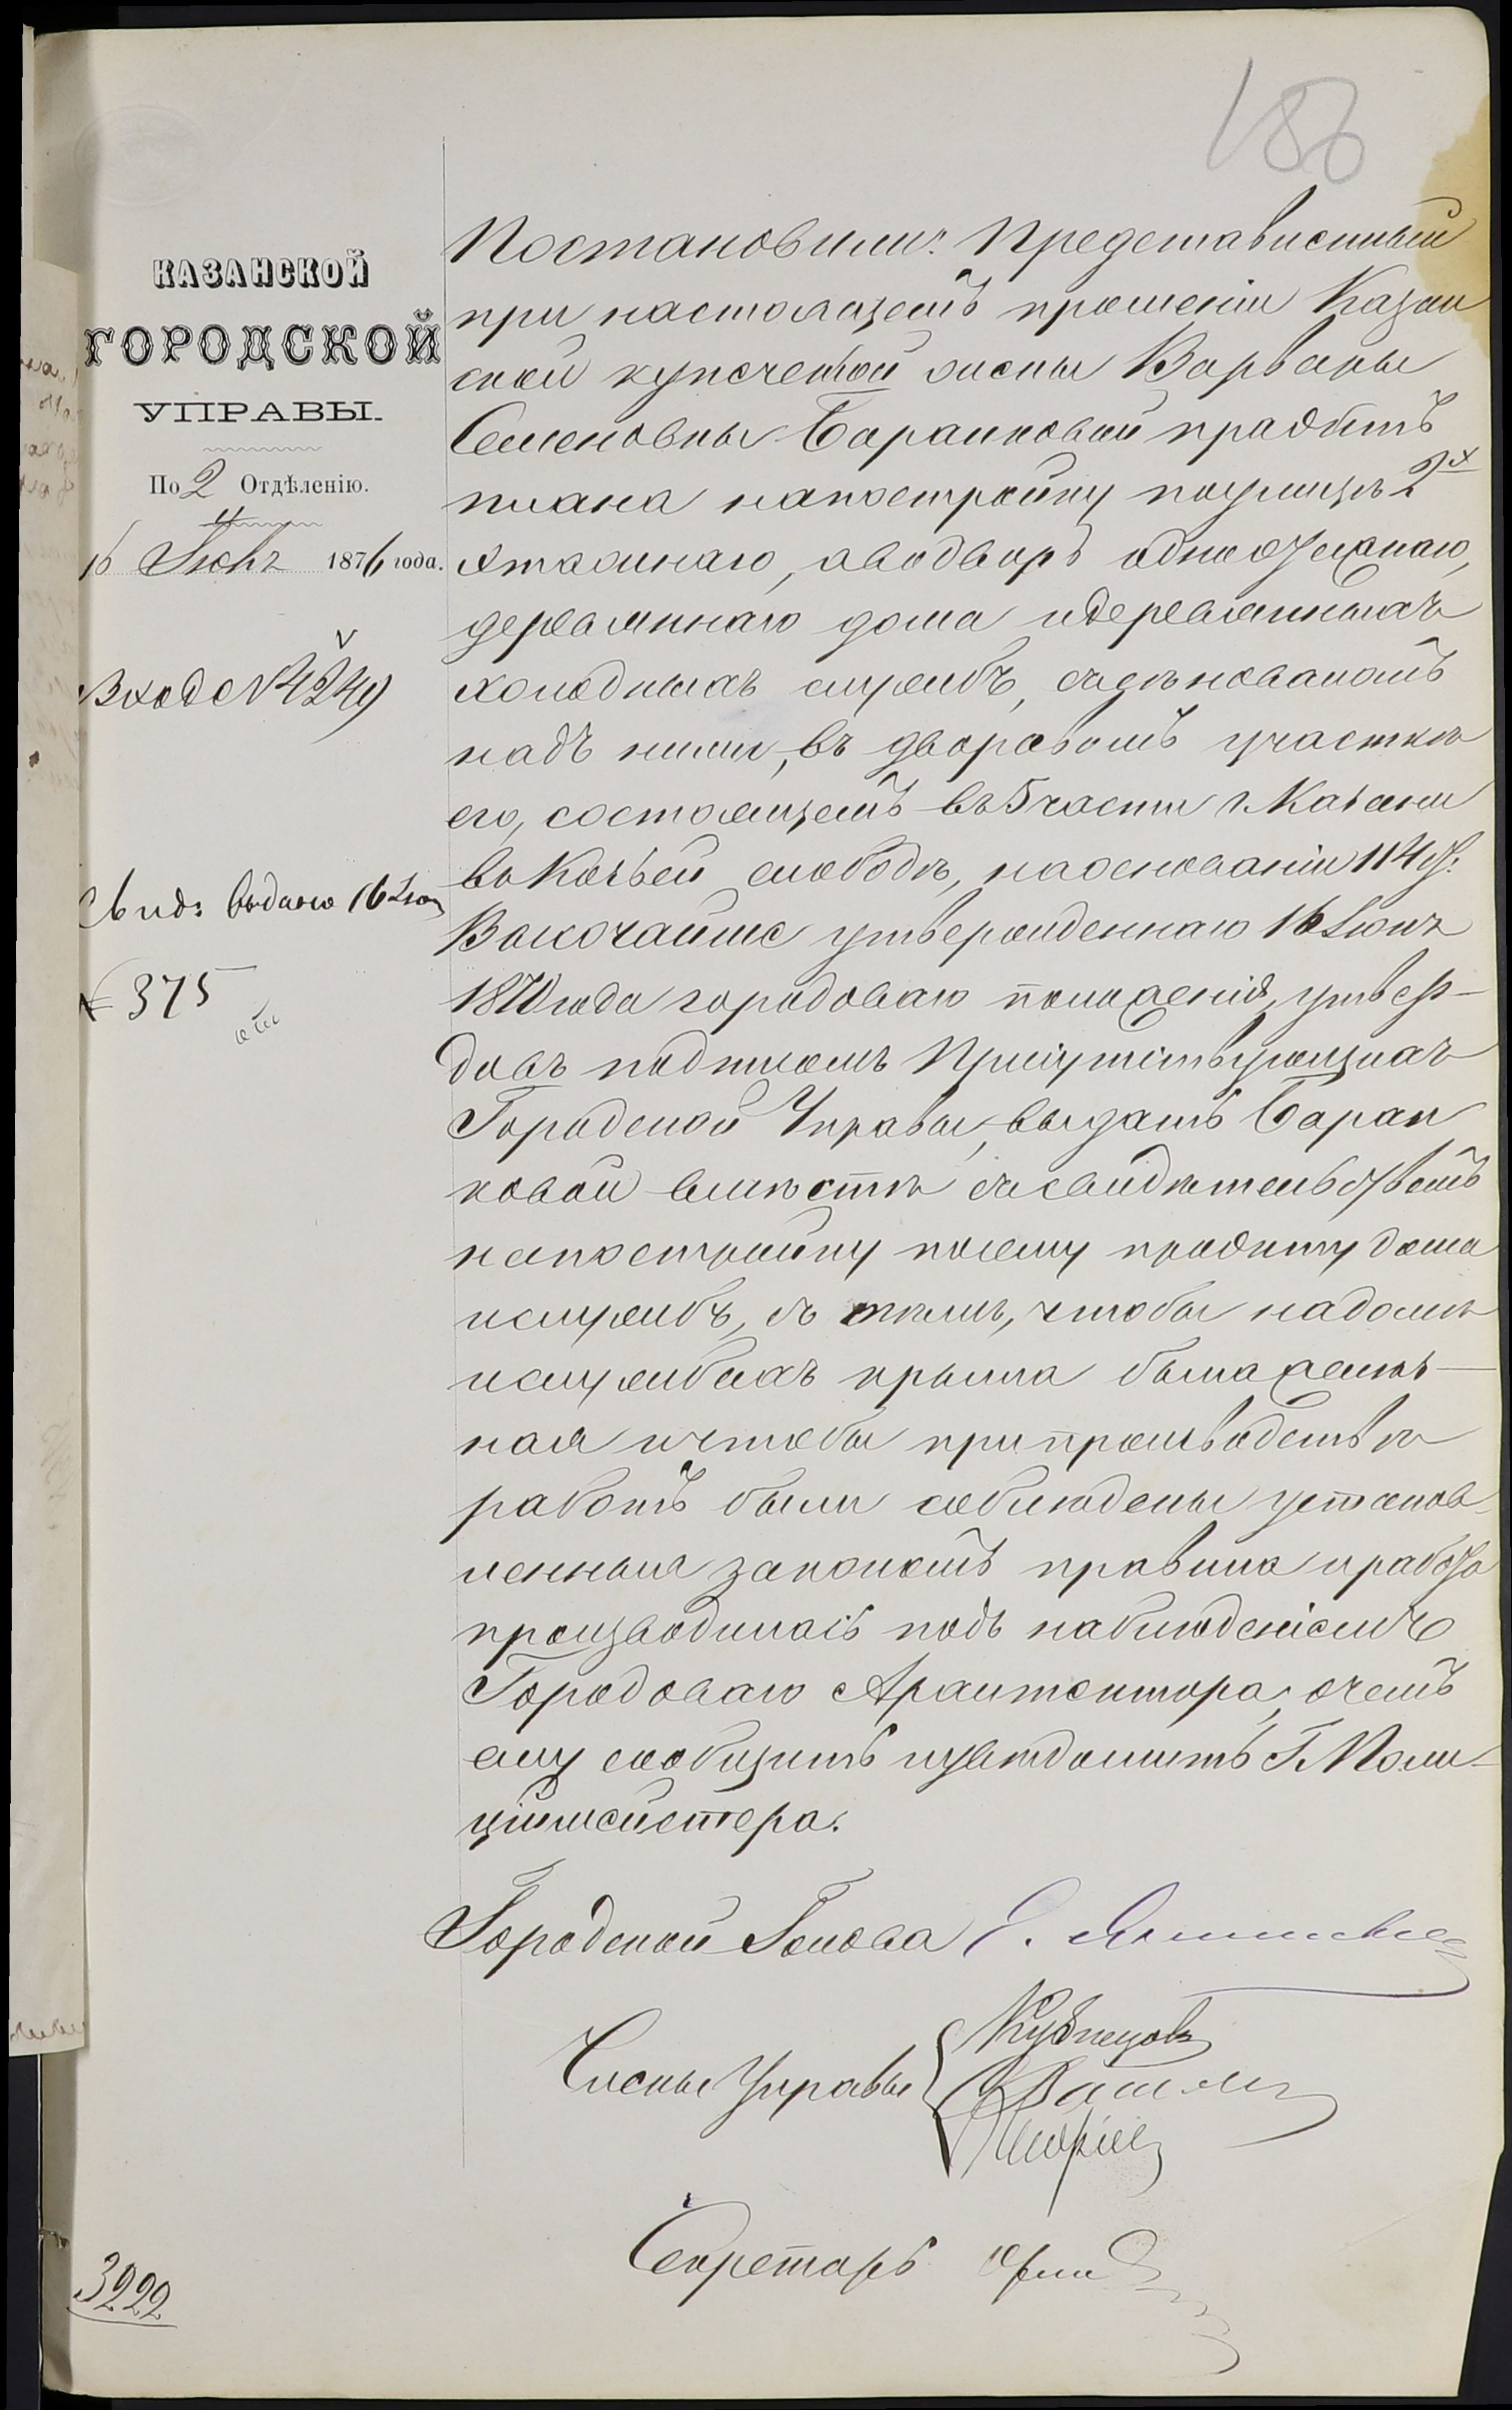 186
КАЗАНСКОЙ
ГОРОДСКОЙ
УПРАВЫ.
По 2 Отдѣленію.
16 Іюня 1876 года.
Вход № 4249
Свид: выдано 16 Іюн
№ 375
Постановили: Представленный
при настоящемъ прошеніи Казан
ской купеческой жены Варвары
Семеновны Баранковой проэктъ
плана на постройку по улицѣ 2х
этажнаго, а во дворѣ одноэтажнаго,
деревяннаго дома и деревянныхъ
холодныхъ службъ, съ сѣноваломъ
надъ ними, въ дворовомъ участкѣ
его, состоящемъ въ 5 части г. Казани
въ Козьей слободѣ, на основаніи 114 ст.
Высочайше утвержденнаго 16 Іюня
1870 года городоваго положенія, утвер-
дивъ подписомъ Присутствующихъ
Городской Управы, выдать Баран
ковой вмѣстѣ съ свидѣтельствомъ
на постройку по сему проэкту дома
и службъ, съ тѣмъ, чтобы на домѣ
и службахъ крыша была желѣз-
ная и чтобы при производствѣ
работъ были соблюдены установ-
ленныя закономъ правила и работа
производилась подъ наблюденіемъ
Городоваго Архитектора, о чемъ
ему сообщить и увѣдомить Г. Поли-
ціймейстера.
Городской Голова
Члены Управы Кузнецовъ
Секретарь
3222